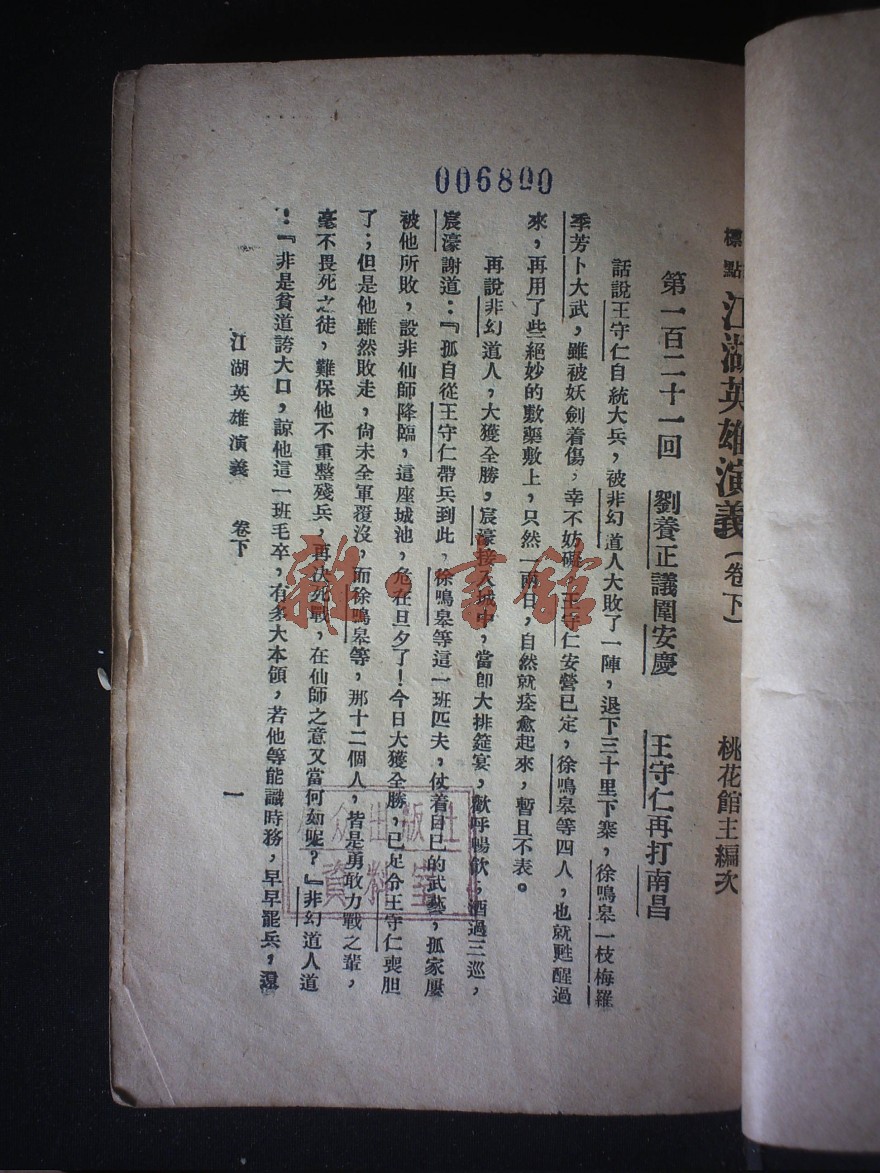 006800
標點江湖英雄演義（卷下）　桃花館主編次
第一百二十一回　劉養正議圍安慶　王守仁再打南昌
話說王守仁自統大兵，被非幻道人大敗了一陣，退下三十里下寨，徐鳴皋一枝梅羅
季芳卜大武，雖被妖劍着傷，幸不妨礙，王守仁安營已定，徐鳴皋等四人，也就甦醒過
來，再用了些絕妙的敷藥敷上，只然一兩日，自然就痊愈起來，暫且不表。
再說非幻道人，大獲全勝，宸濠接入城中，當卽大排筵宴，歡呼暢飲；酒過三巡，
宸濠謝道：『孤自從王守仁帶兵到此，徐鳴皋等這一班匹夫，仗着自已的武藝，孤家屢
被他所敗，設非仙師降臨，這座城池，危在旦夕了！今日大獲全勝，已足令王守仁喪胆
了；但是他雖然敗走，尙未全軍覆沒，而徐鳴皋等，那十二個人，皆是勇敢力戰之輩，
毫不畏死之徒，難保他不重整殘兵，再决死戰，在仙師之意又當何如呢？』非幻道人道
：『非是貧道誇大口，諒他這一班毛卒，有多大本領，若他等能識時務，早早罷兵，還
江湖英雄演義　卷下
一
雜·書館
众出版社
資料室